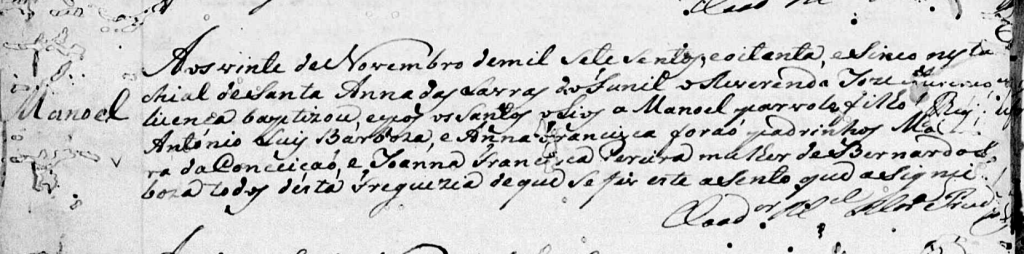 Aos vinte de Novembro de mil sete sentos, e oitenta, e sinco nesta
chial de Santa Anna das Lavras do Funil o Reverendo Joze
Manoel
licença baptizou, e pos os Santos oleos a Manoel parvolo filho
António Luis Barboza, e Anna Francisca foraõ padrinhos
ra da Conceiçaõ, e Joanna Francisca Pereira mulher de Bernardo
boza todos desta freguezia de que se fes este asento que asignei
Coad.or M.el